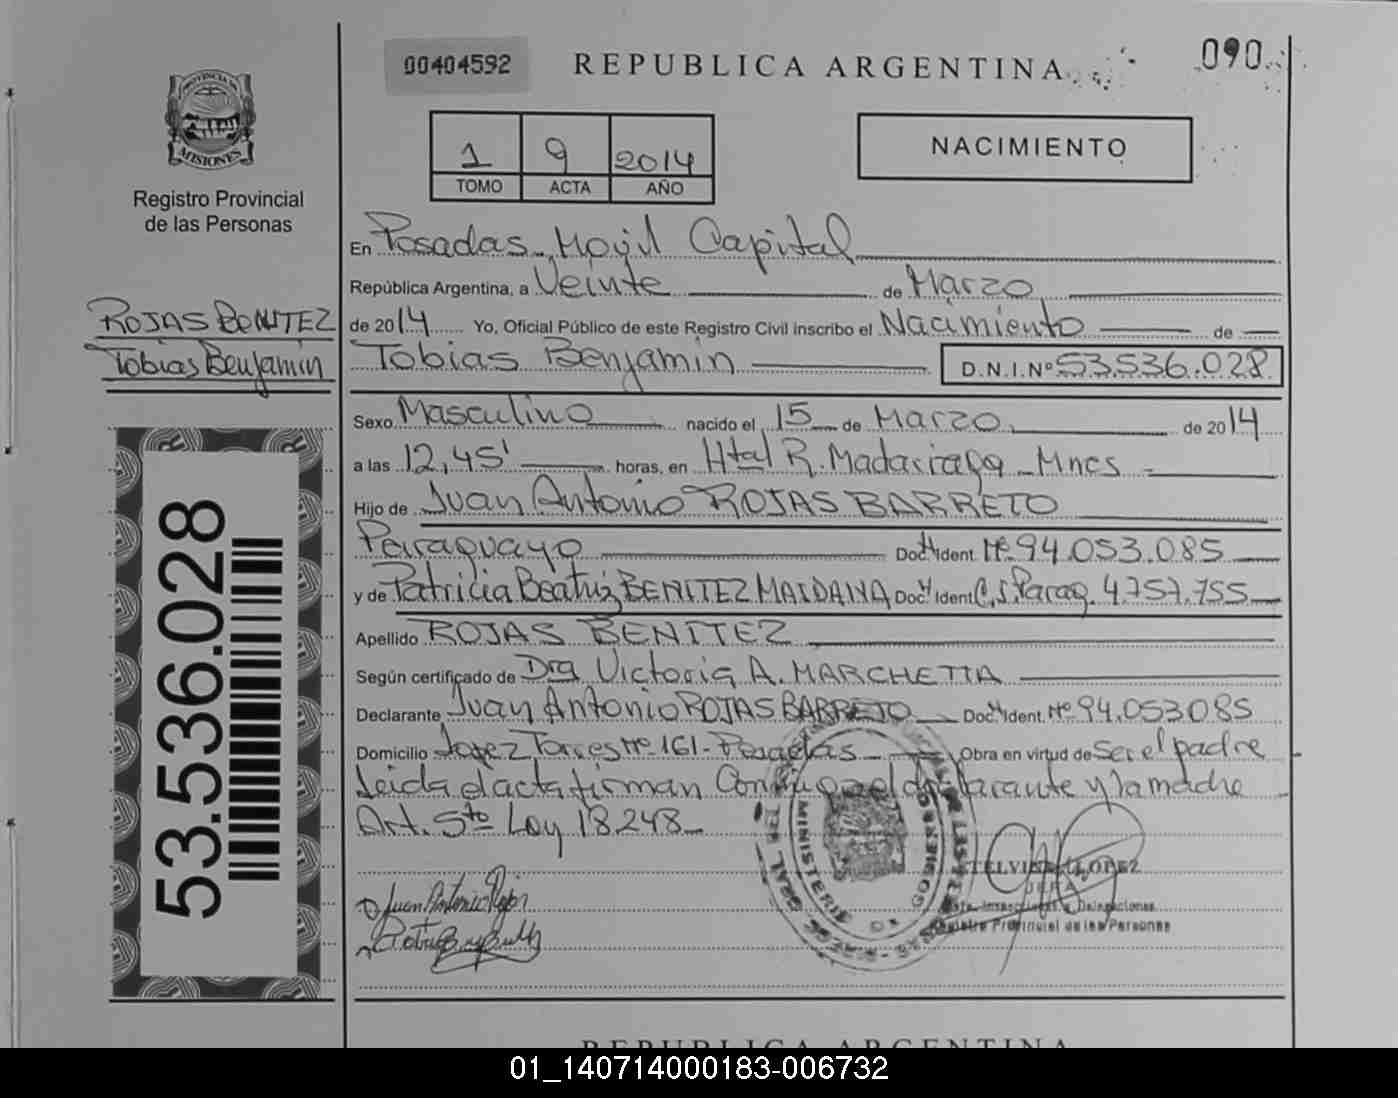 00404592
REPUBLICA ARGENTINA
090
PROVINCIA DE
MISIONES
Registro Provincial
de las Personas
1 9 2014
TOMO ACTA AÑO
NACIMIENTO
En Posadas Móvil Capital
República Argentina, a Veinte de Marzo
de 2014 Yo, Oficial Público de este Registro Civil inscribo el Nacimiento de
Tobias Benjamin D.N.I.Nº 53.536.028
ROJAS BENITEZ
Tobias Benjamin
Sexo Masculino nacido el 15 de Marzo de 2014
a las 12,45' horas, en Htal R. Madariaga Mnes
Hijo de Juan Antonio ROJAS BARRETO
Paraguayo Doc. Ident. Nº 94.053.085
y de Patricia Beatriz BENITEZ MAIDANA Doc. Ident C.I. Parag. 4.757.755
Apellido ROJAS BENITEZ
Según certificado de Dra Victoria A. MARCHETTA
Declarante Juan Antonio ROJAS BARRETO Doc. Ident. Nº 94.053085
Domicilio Lopez Torres Nº 161 - Posadas Obra en virtud de ser el padre
Leida el acta firman Conmigo el declarante y la madre
Art. 5to Ley 18.248
53.536.028
MINISTERIO
GOBIERNO
Juan Antonio Rojas
LOPEZ
JEFA
Inspecciones Delegaciones
Registro Provincial de las Personas
REPUBLICA ARGENTINA
01_140714000183-006732